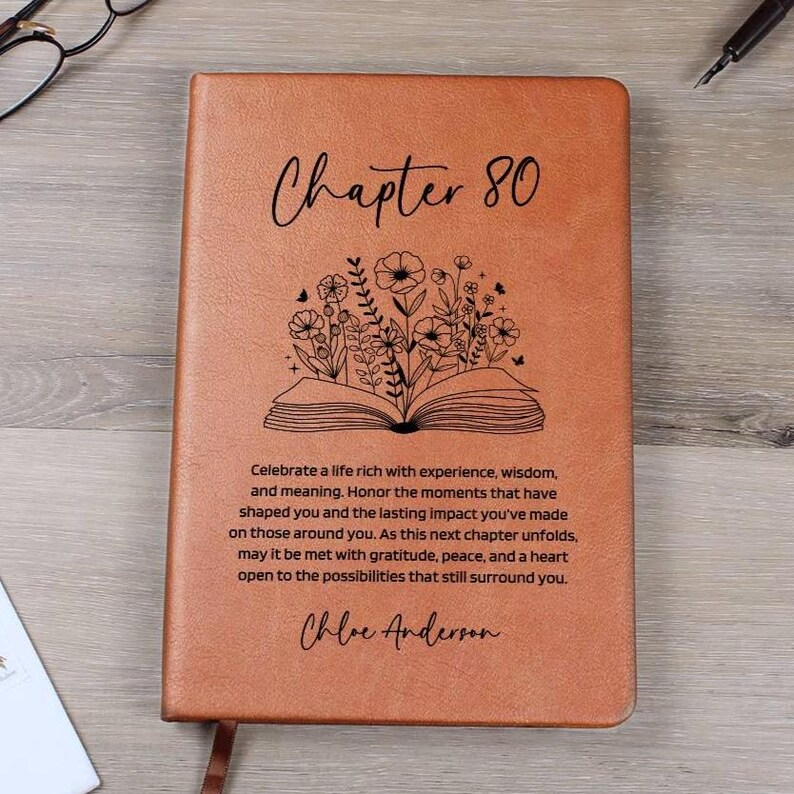 Chapter 80
Celebrate a life rich with experience, wisdom,
and meaning. Honor the moments that have
shaped you and the lasting impact you've made
on those around you. As this next chapter unfolds,
may it be met with gratitude, peace, and a heart
open to the possibilities that still surround you.
Chloe Anderson